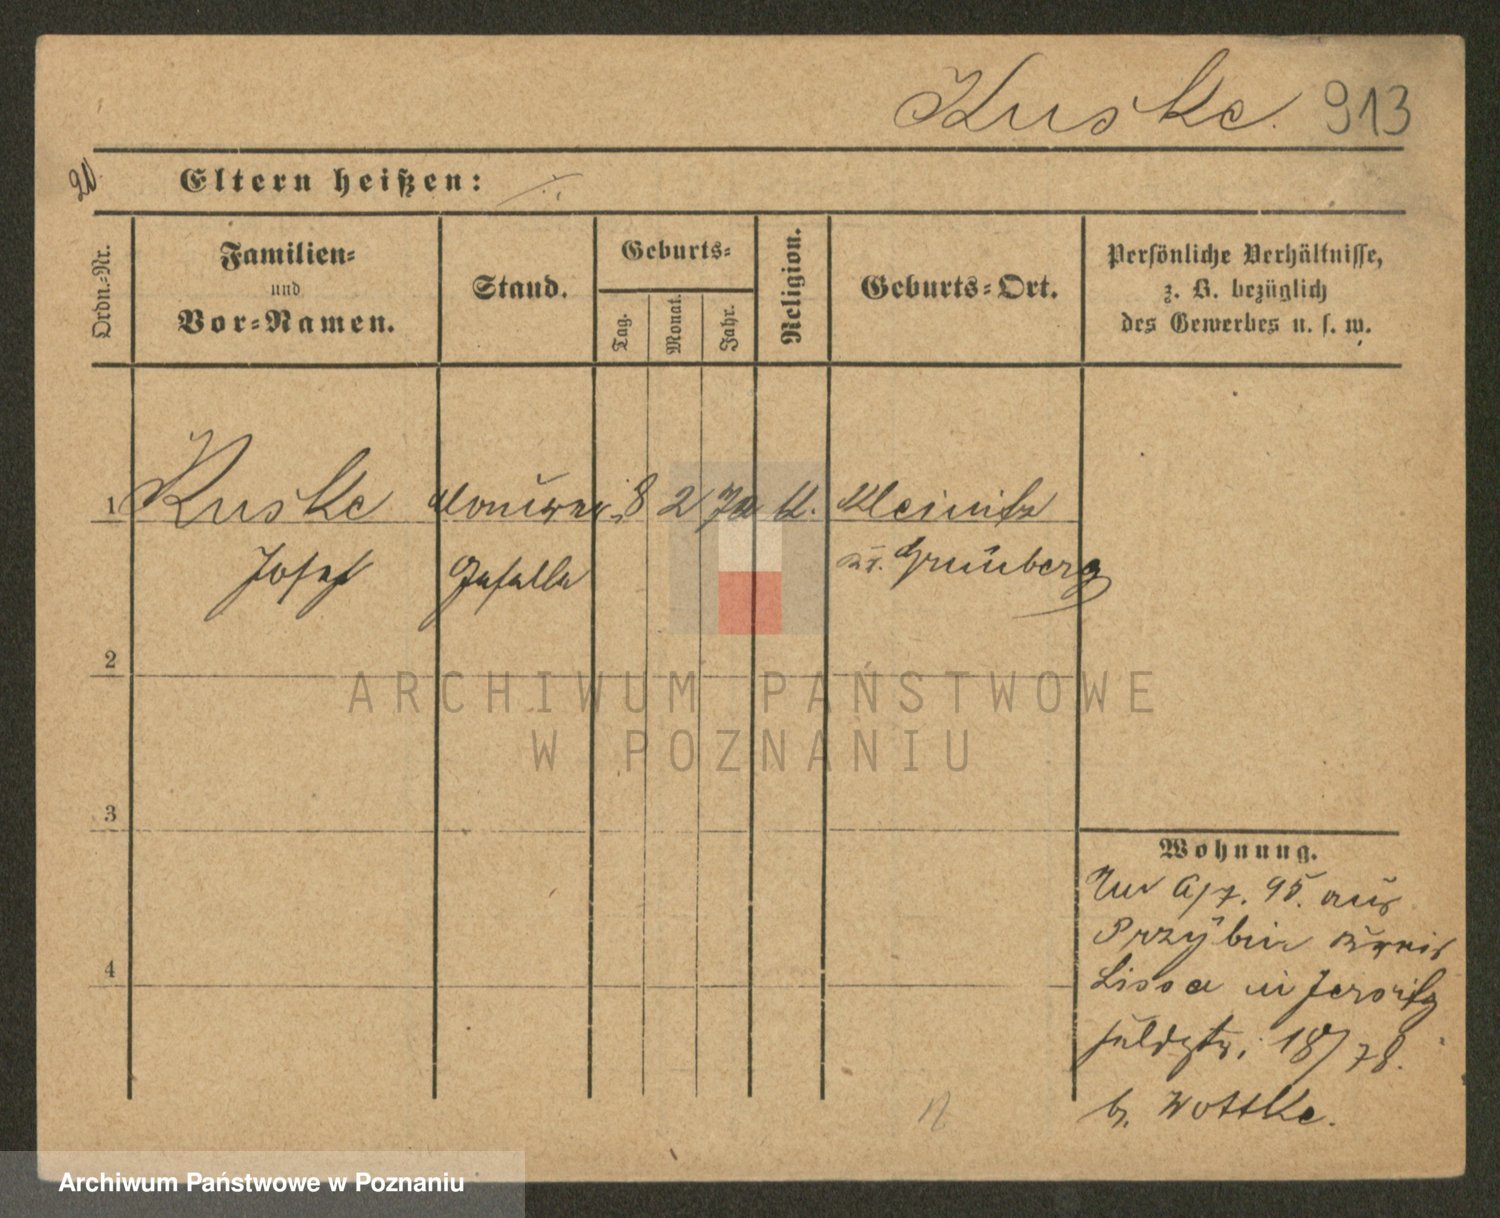 Kuske. 913
20.
Eltern heißen: ./.
Ordn.-Nr.
Familien-
und
Vor-Namen.
Stand.
Geburts-
Tag.
Monat.
Jahr.
Religion.
Geburts-Ort.
Persönliche Verhältnisse,
z. B. bezüglich
des Gewerbes u. s. w.
1 Kuske Maurer 8 2 70 k. Kleinitz
Josef Geselle Kr. Grünberg
2
3
4
ARCHIWUM PAŃSTWOWE
W POZNANIU
Wohnung.
Apr. 95. aus
Przybin Kreis
Lissa in Jersitz
Feldstr. 18/78.
b. Wottke.
Archiwum Państwowe w Poznaniu